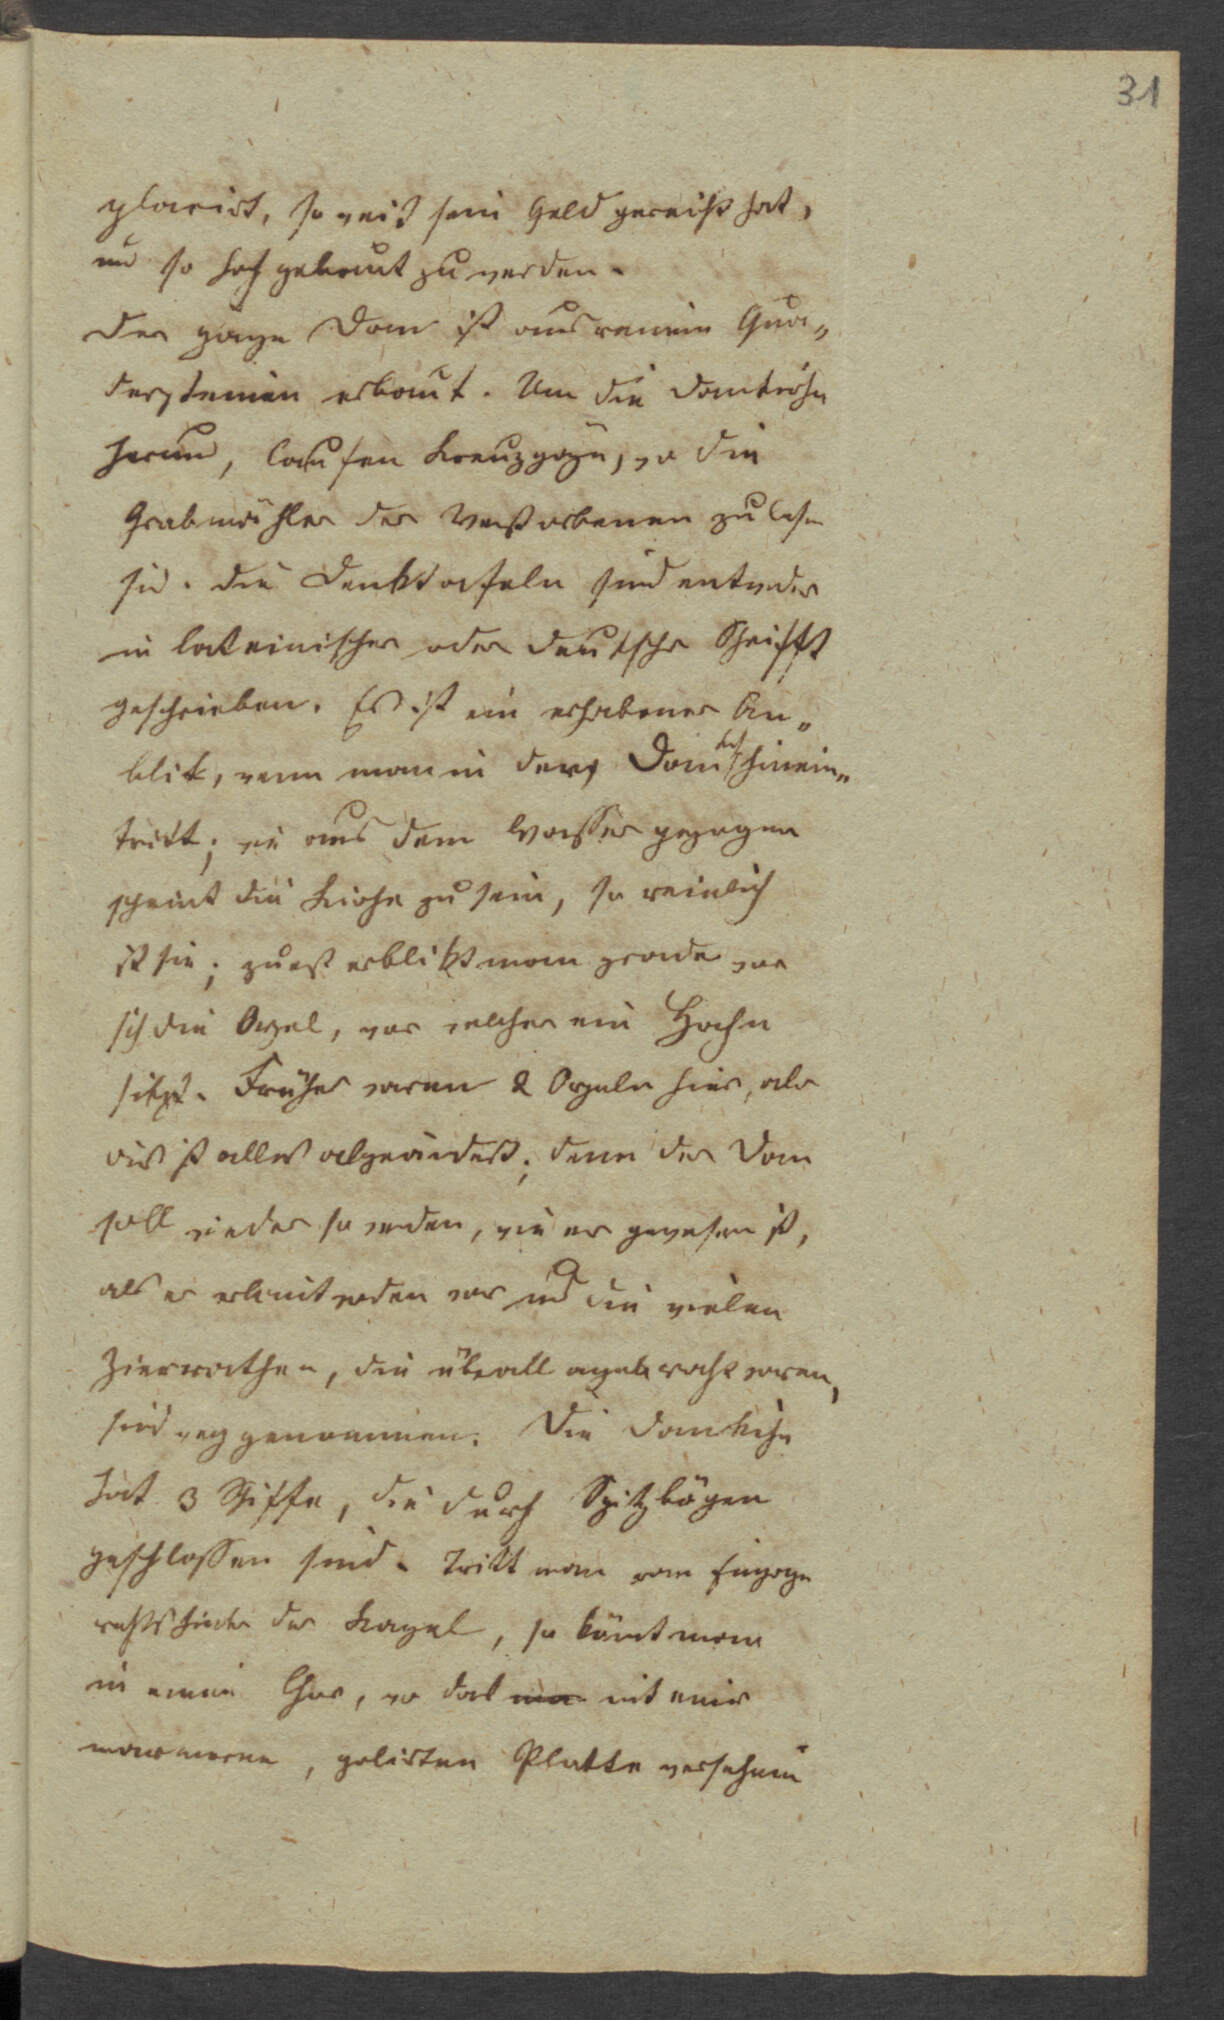 31
placirt, so weit sein Geld gereicht hat,
um so hoch gebaut zu werden.
Der ganze Dom ist aus reinen Qua„
dersteinen erbaut. Um die Domkirche
herum, laufen Kreuzgänge, wo die
Grabmähler der Verstorbenen zu lesen
sind. Die Denktafeln sind entweder
in lateinischer oder deutscher Schrifft
geschrieben. Es ist ein erhabener An„
blik, wenn man in den Dom hinein„
tritt; wie aus dem Wasser gezogen
scheint die Kirche zu sein, so reinlich
ist sie; zuerst erblikt man grade vor
sich die Orgel, vor welcher ein Hahn
sitzt. Früher waren 2 Orgeln hier, aber
dies ist alles abgeändert; denn der Dom
soll wieder so werden, wie er gewesen ist,
als er erbaut worden war und die vielen
Zierrathen, die überall angebracht waren,
sind weggenommen. Die Domkirche
hat 3 Schiffe, die durch Spitzbögen
geschlossen sind. Tritt man vom Eingange
rechts hinter der Kanzel, so kömt man
in einen Chor, wo das mit einer
marmornen, Platte versehene